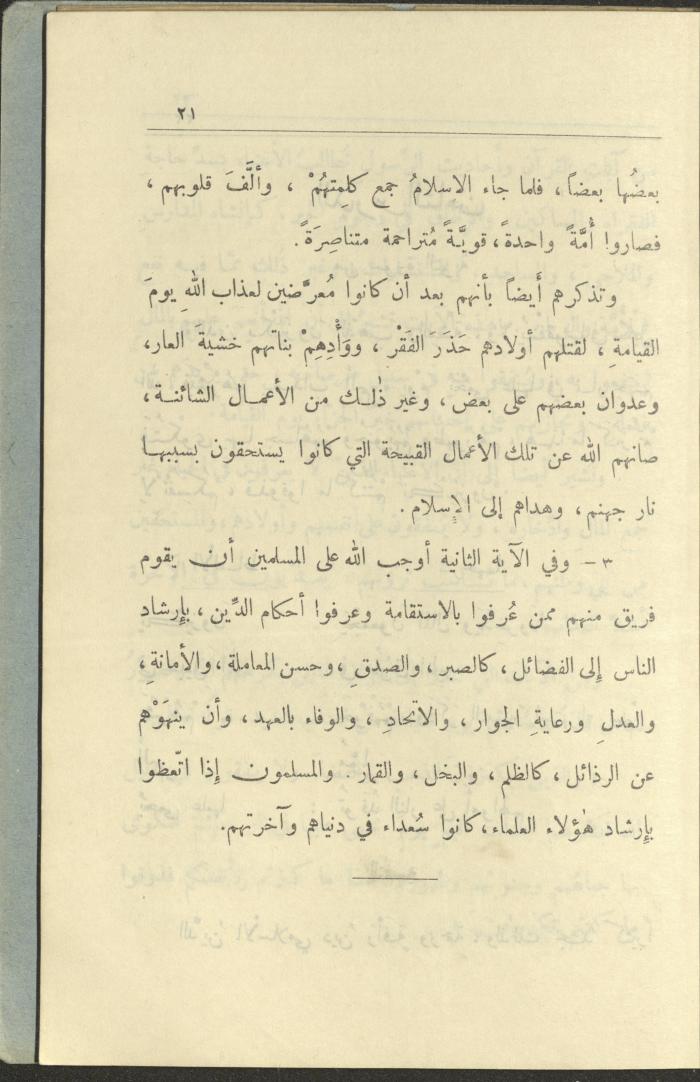 ٢١
بعضُها بعضاً، فلما جاء الاسلامُ جمع كلِمتهُمْ ، وألَّفَ قلوبهم ،
فصاروا أُمَّةً واحدةً، قويَّةً مُتراحمة متناصِرَةً.
وتذكرهم أَيضاً بأنهم بعد أن كانوا مُعرَّضين لعذاب اللهِ يومَ
القيامةِ ، لقتلهم أولادهم حَذَرَ الفَقْر ، ووَأْدِهِمْ بناتهم خشيةَ العار،
وعدوان بعضهم على بعض ، وغير ذٰلك من الأعمال الشائنة ،
صانهم الله عن تلك الأعمال القبيحة التي كانوا يستحقون بسببها
نار جهنم ، وهداهم إلى الإِسلام .
٣ – وفي الآية الثانية أوجب الله على المسلمين أن يقوم
فريق منهم ممن عُرفوا بالاستقامة وعرفوا أحكام الدِّين ، بإِرشاد
الناس إِلى الفضائل ، كالصبر ، والصدقِ ، وحسن المعاملة ، والأمانةِ ،
والعدلِ ورعايةِ الجوار ، والاتحادِ ، والوفاء بالعهد ، وأن ينهَوْهم
عن الرذائل ، كالظلم ، والبخل ، والقمار . والمسلمون إِذا اتّعظوا
بإِرشاد هٰؤلاء العلماء ، كانوا سُعداء في دنياهم وآخرتهم.